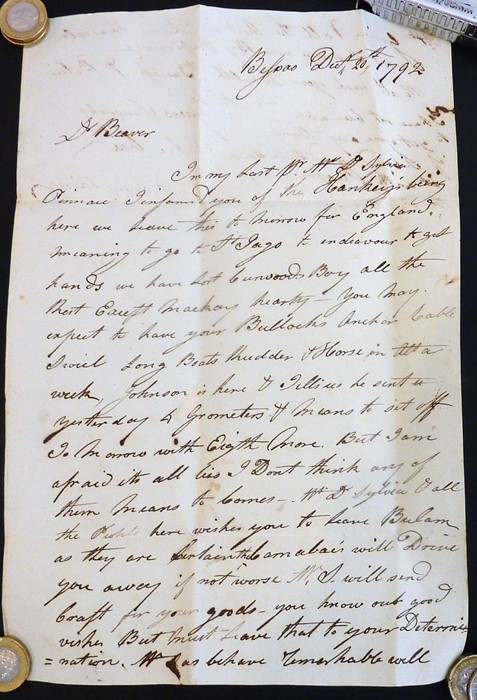 Bissao Decr 20th 1792
Dr Beaver
In my last pr. Mr. D Sylvia
Pinnace I informd you of the Hankeys being
here we leave this to morrow for England,
meaning to go to St Jago to endeavour to get
hands we have lost Curwoods Boy all the
Rest Except Mackay hearty - you May
expect to have your Bullocks Anchor Cable
Swivel Long Boats Rudder & Horse in a
week, Johnson is here & Tells us he sent u
yesterday 4 Grometers & Means to set off
To Morrow with Eigth More. But I am
afraid its all lies I Dont think any of
them Means to Come - Mr. D Sylvia & all
the People here wishes you to leave Bulam
as they are Certain the Canabais will Drive
you away if not worse Mr. S. will send
Craft for your goods - you know our good
wishes But Must Leave that to your Determi=
=nation. Mr. has behave remarkable well